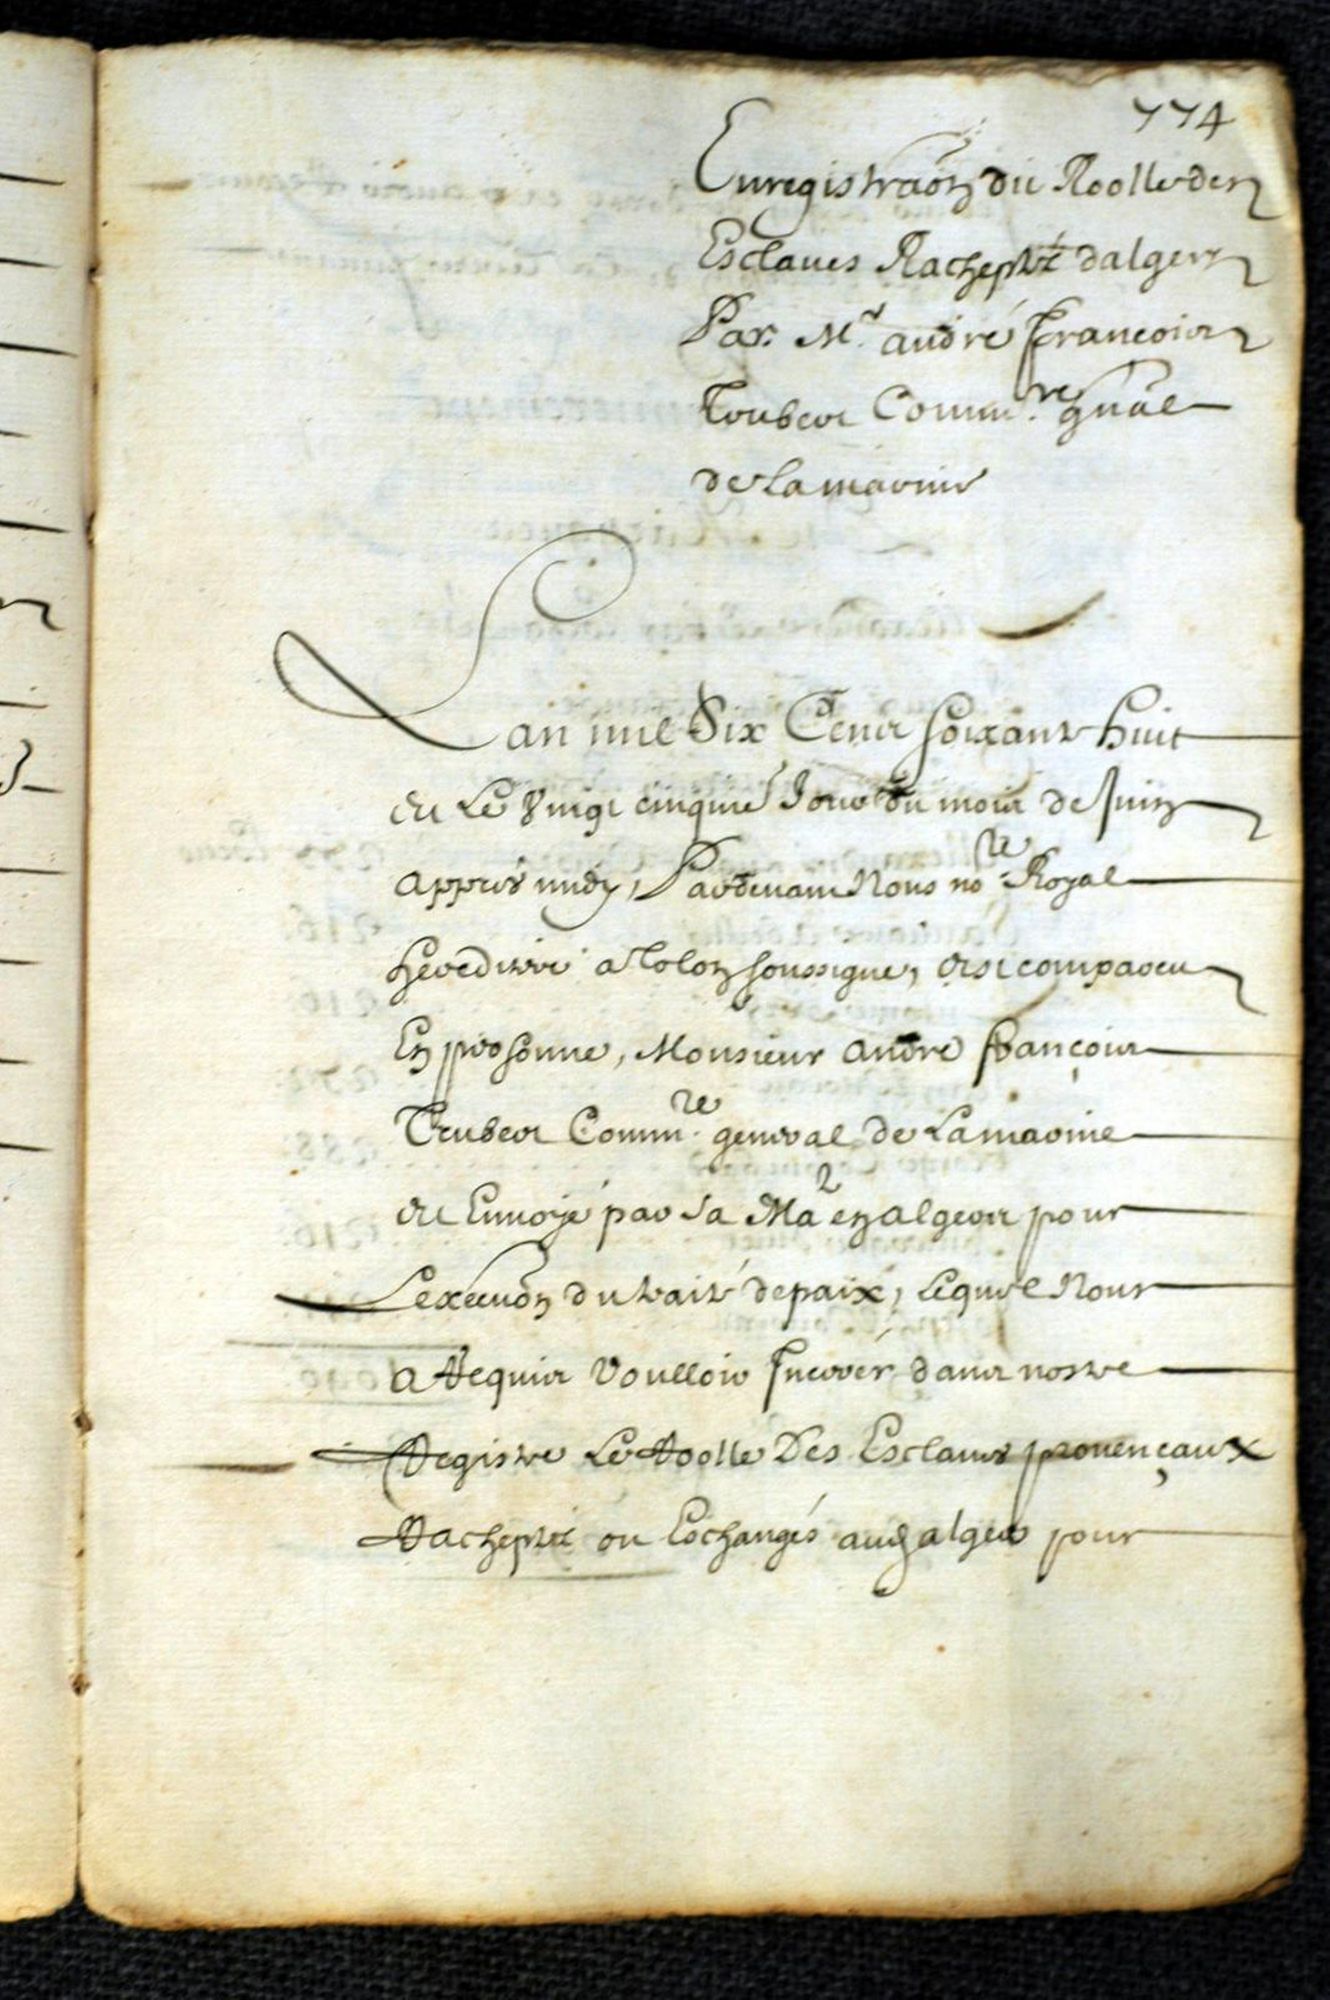 774
Enregistraôn du Roolle des
Esclaues Racheptés dalgers
Par Mr. andré françois
Trubert Commre. gnâl
de la marine
Lan mil Six Cens soixante huit
et Le Vingt cinquie Jour du mois de Juin
appres midy, Pardeuant Nous nore. Royal
hereditere a Tolon soussigne, Est compareu
En persone, Monsieur andre françois
Trubert Commre. general de La marine
et Enuoyé par sa Ma en algers pour
Lexecuôn du traité de paix, Lequel Nous
a Requis Voulloir Incerer dans nostre
Registre Le Roolle Des Esclaues prouençaux
Racheptés ou Eschangés aud algers pour